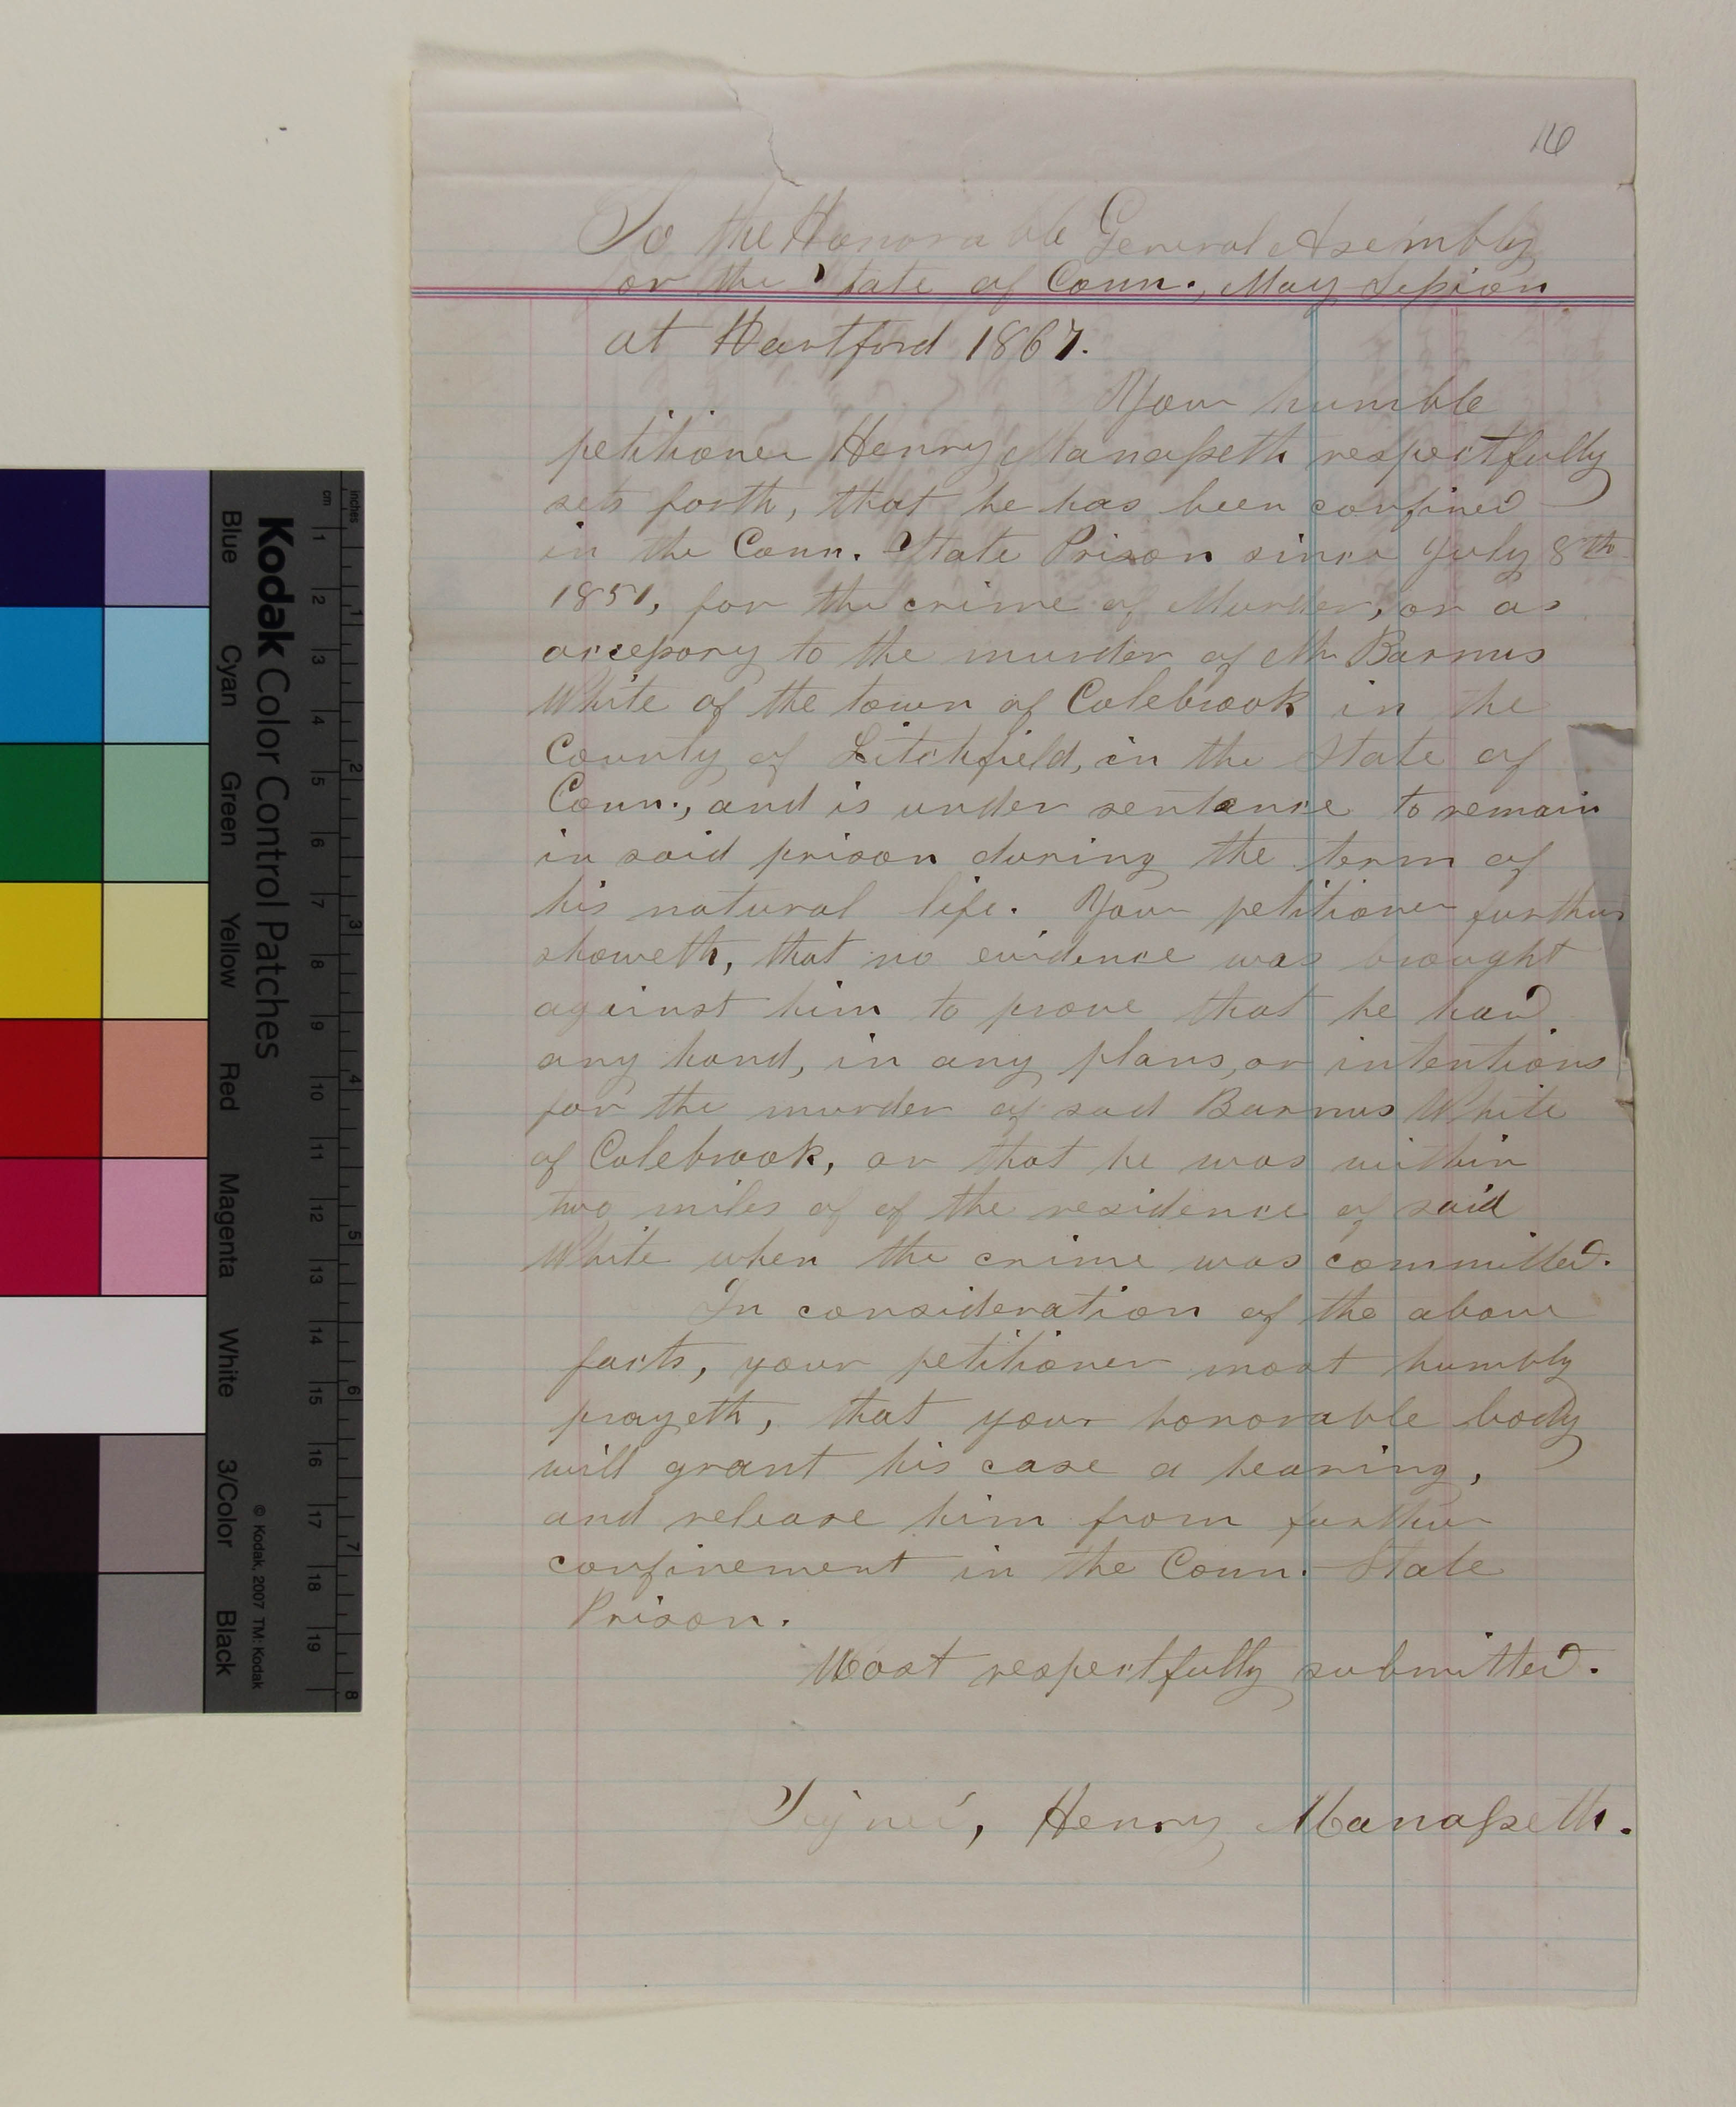 16
To the Honorable General Asembly
for the State of Conn., May Session
at Hartford 1867.
Your humble
petitioner Henry Manasseth respectfully
sets forth, that he has been confined
in the Conn. State Prison since July 8th
1851, for the crime of Murder, or as
accessory to the murder of Mr Barnus
White of the town of Colebrook in the
County of Litchfield, in the State of
Conn., and is under sentance to remain
in said prison during the term of
his natural life. Your petitioner further
showeth, that no evidence was brought
against him to prove that he had
any hand, in any plans, or intentions
for the murder of sad Barnus White
of Colebrook, or that he was within
two miles of of the residence of said
White when the crime was committed.
In consideration of the above
facts, your petitioner most humbly
prayeth, that your honorable body
will grant his case a hearing,
and release him from further
confinement in the Conn. State
Prison.
Most respectfully submitted.
Signed, Henry Manasseth.
Kodak Color Control Patches
Blue Cyan Green Yellow Red Magenta White 3/Color Black
© Kodak, 2007 TM: Kodak
cm 1 2 3 4 5 6 7 8 9 10 11 12 13 14 15 16 17 18 19
inches 1 2 3 4 5 6 7 8